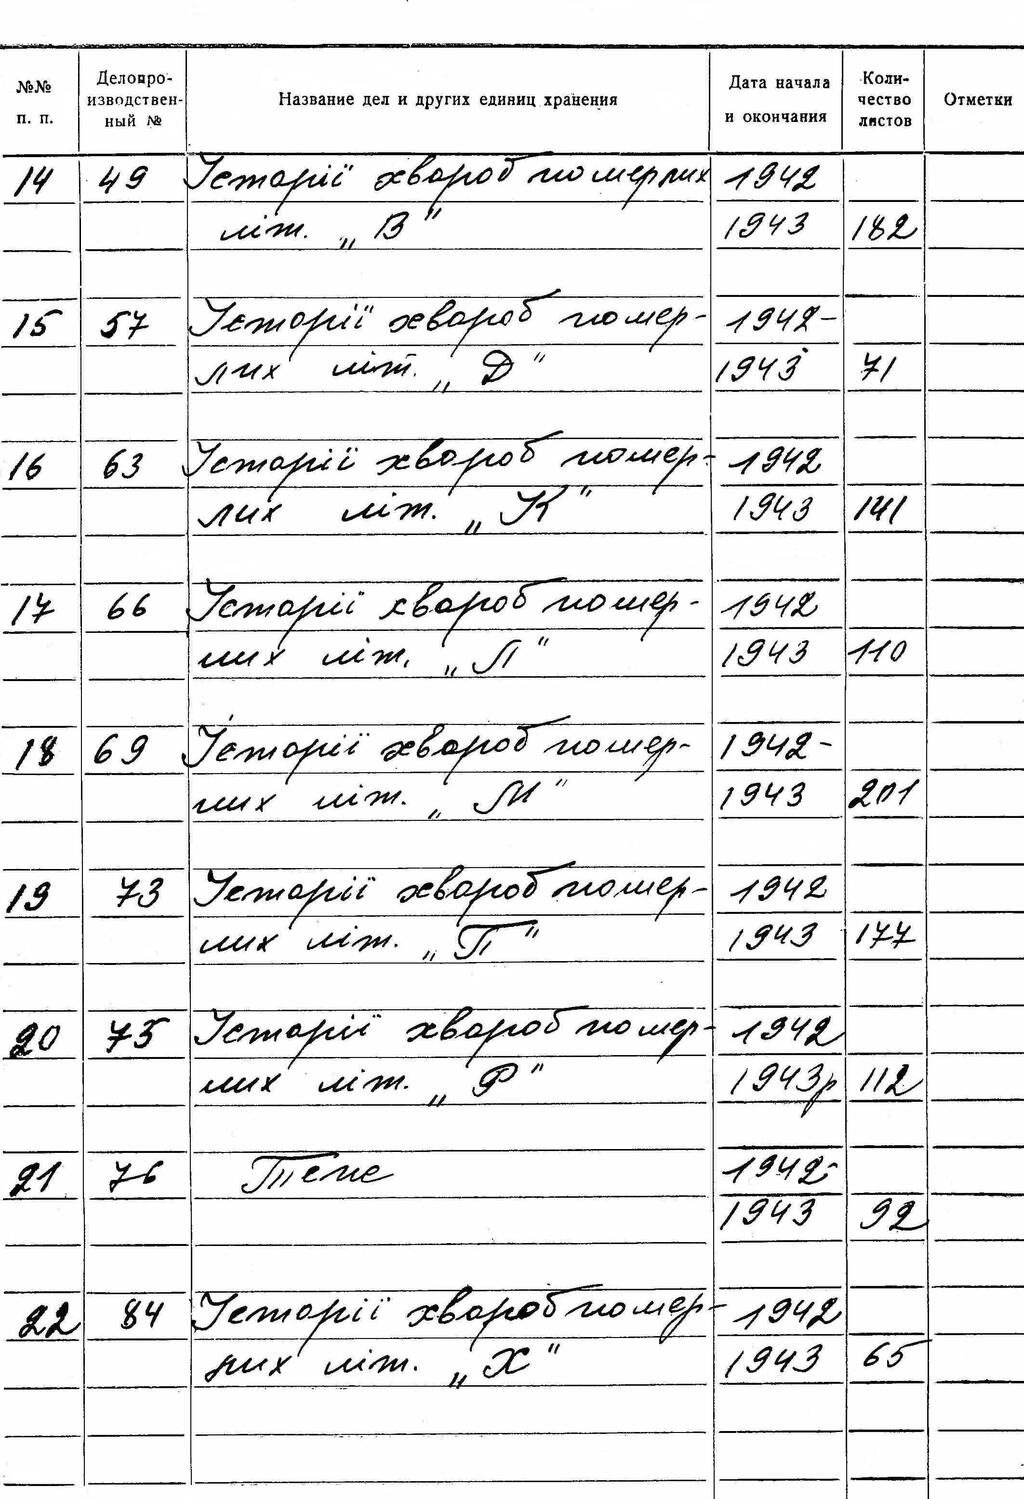 №№ п. п. Делопроизводственный № Название дел и других единиц хранения Дата начала и окончания Количество листов Отметки
14 49 Історії хвороб померлих 1942
літ. „В" 1943 182
15 57 Історії хвороб помер- 1942-
лих літ. „Д" 1943 71
16 63 Історії хвороб помер- 1942
лих літ. „К" 1943 141
17 66 Історії хвороб помер- 1942
лих літ. „Л" 1943 110
18 69 Історії хвороб помер- 1942-
лих літ. „М" 1943 201
19 73 Історії хвороб помер- 1942
лих літ. „П" 1943 177
20 75 Історії хвороб помер- 1942
лих літ. „Р" 1943р 112
21 76 Теж 1942-
1943 92
22 84 Історії хвороб помер- 1942
лих літ. „Х" 1943 65